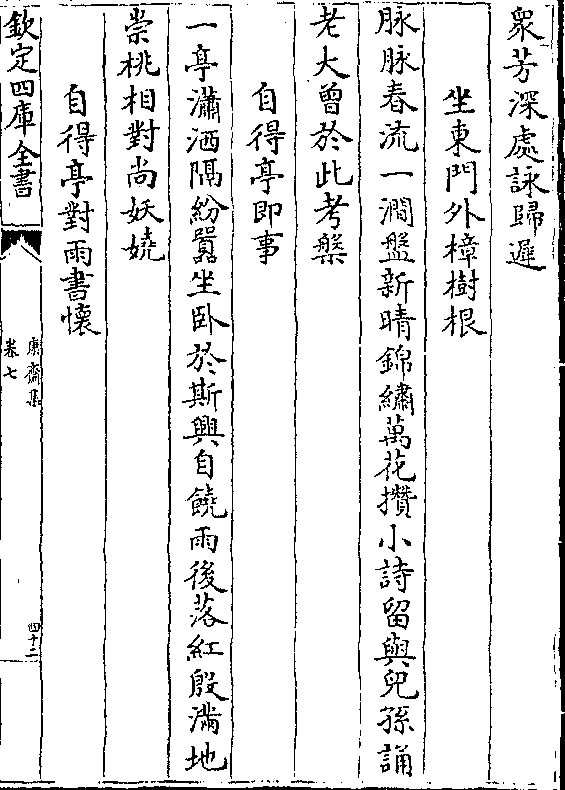 衆芳深處詠歸遲
坐東門外樟樹根
脉脉春流一澗盤新晴錦繡萬花攢小詩留與兒孫誦
老大曾於此考槃
自得亭即事
一亭瀟洒隔紛囂坐卧於斯興自饒雨後落紅殷滿地
崇桃相對尚妖嬈
自得亭對雨書懷
欽定四庫全書
康齋集
卷七
四十二